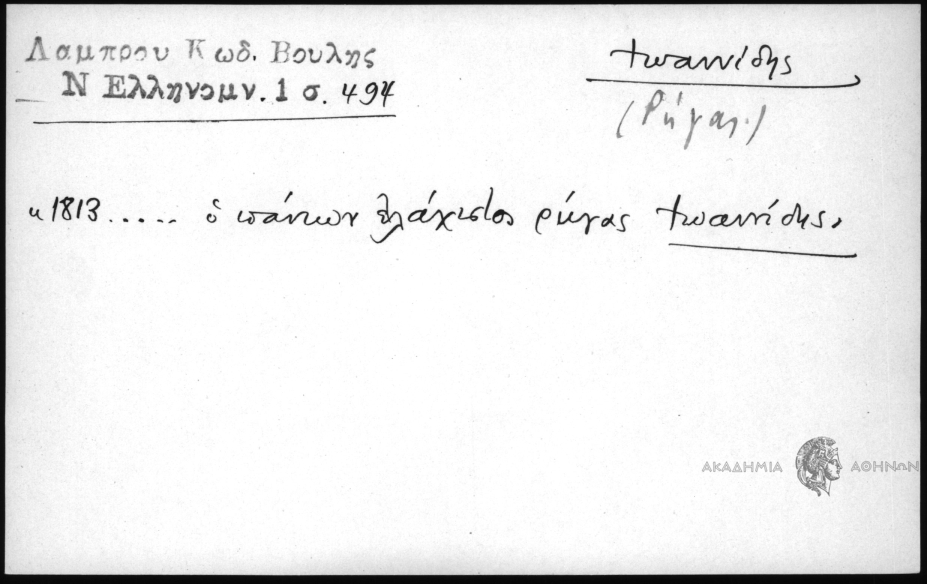 Λαμπρου Κωδ. Βουλης
Ν Ελληνομν. 1 σ. 494
Ἰωαννίδης
(Ρήγας)
"1813..... ὁ πάντων ἐλάχιστος ρήγας Ἰωαννίδης.
ΑΚΑΔΗΜΙΑ ΑΘΗΝΩΝ